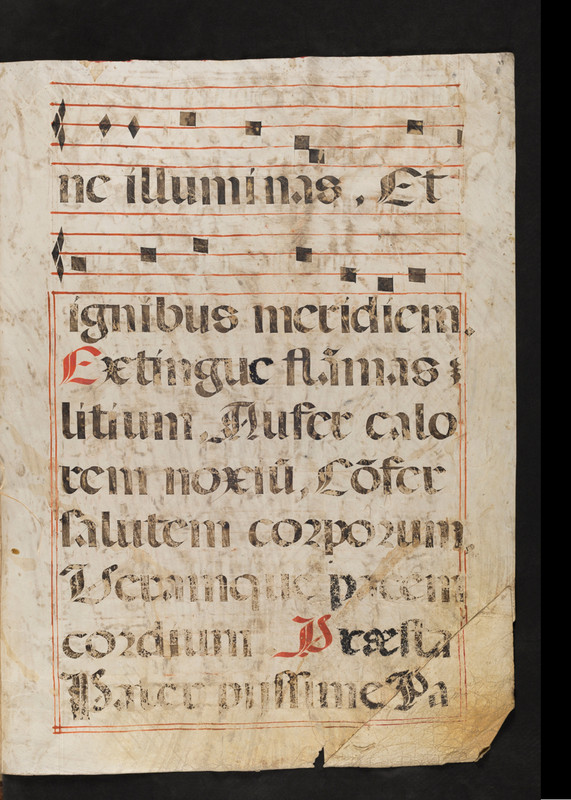 nc illuminas, Et
ignibus meridiem.
Extingue flãmas
litium, Aufer calo
rem noxiũ, Cõfer
salutem corporum,
Veramque pacem
cordium Præsta
Pater piissime Pa